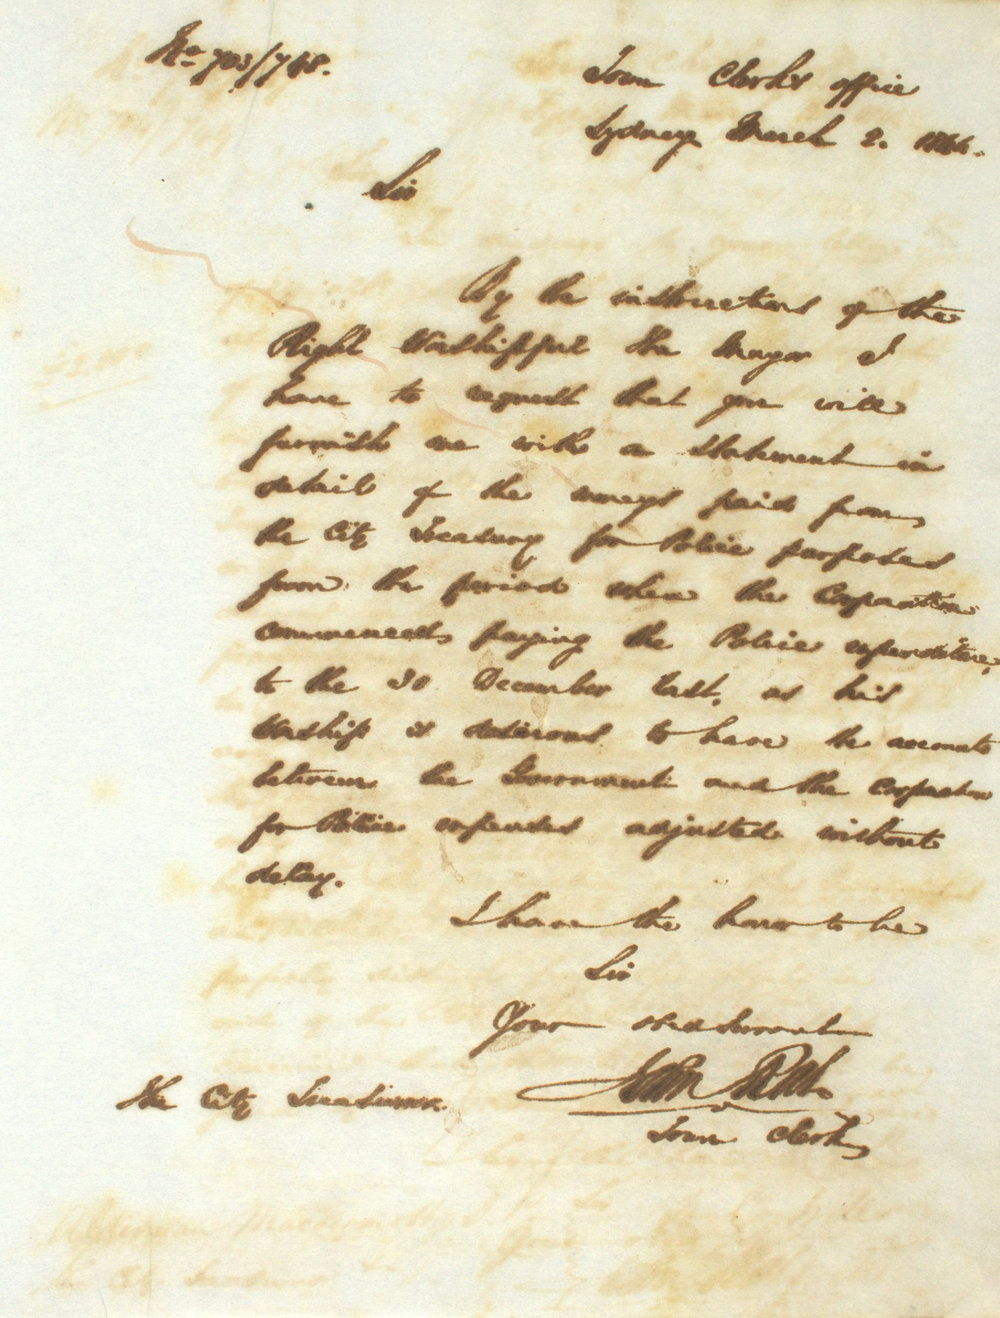 No 703/748.
Town Clerk's office
Sydney March 2. 1844.
Sir
By the instructions of the
Right Worshipful the Mayor I
have to request that you will
furnish me with a statement in
detail of the moneys paid from
the City Treasury for Police purposes
from the period when the Corporation
commenced paying the Police expenditure,
to the 30 December last, as his
Worship is desirous to have the accounts
between the Government and the Corporation
for Police expenses adjusted without
delay.
I have the honor to be
Sir
Your obed Servant
Town Clerk
The City Treasurer.